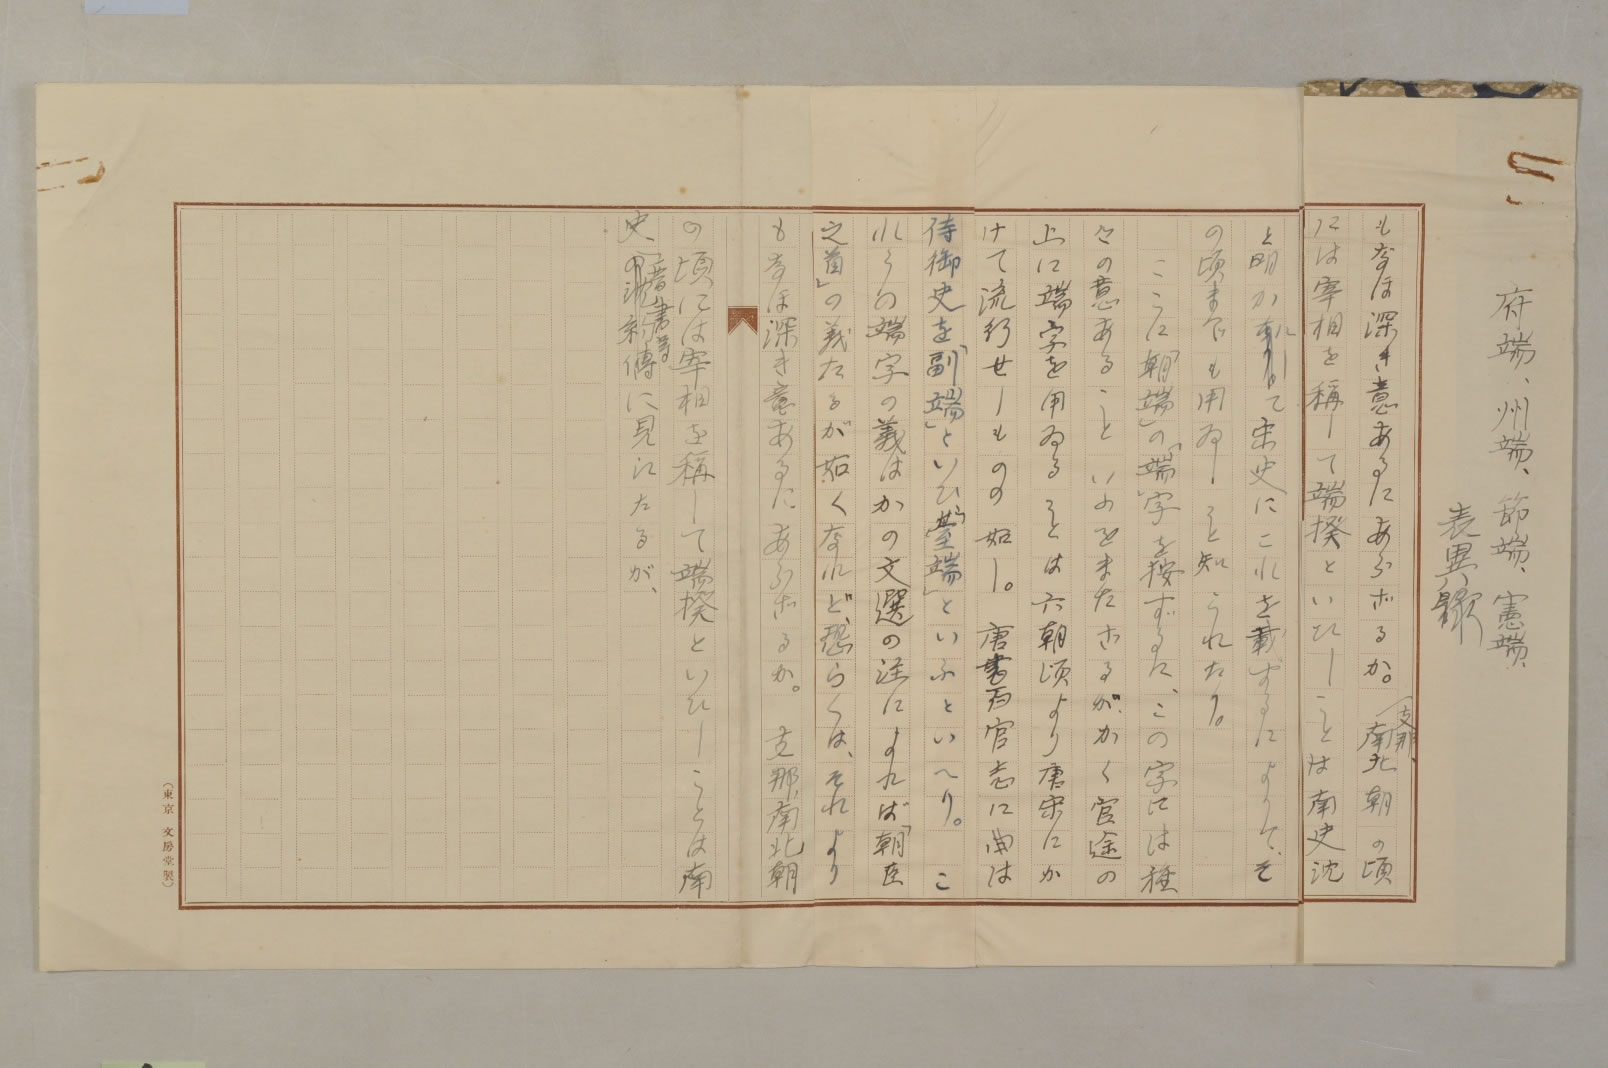 府端、州端、節端、憲端、
表異録
もなほ深き意あるにあらざるか。(支那、南北朝の頃
には宰相を稱して端揆といひしことは南史沈
と明かにして宋史にこれを載するによりて、そ
の頃までも用ゐしこと知られたり。
ここに「朝端」の「端」字を按ずるに、この字には種
々の意あることいふをまたざるが、かく官途の
上に端字を用ゐることは六朝頃より唐宋にか
けて流行せしものの如し。唐書百官志に曲は
侍御史を「副端」といひ「臺端」といふといへり。こ
れらの端字の義はかの文選の注によれば「朝臣
之首」の義たるが如くなれど、恐らくは、それより
もなほ深き意あるにあらざるか。支那、南北朝
の頃には宰相を稱して端揆といひしことは南
史、(晋書等の沈約傳に見えたるが、
(東京 文房堂製)